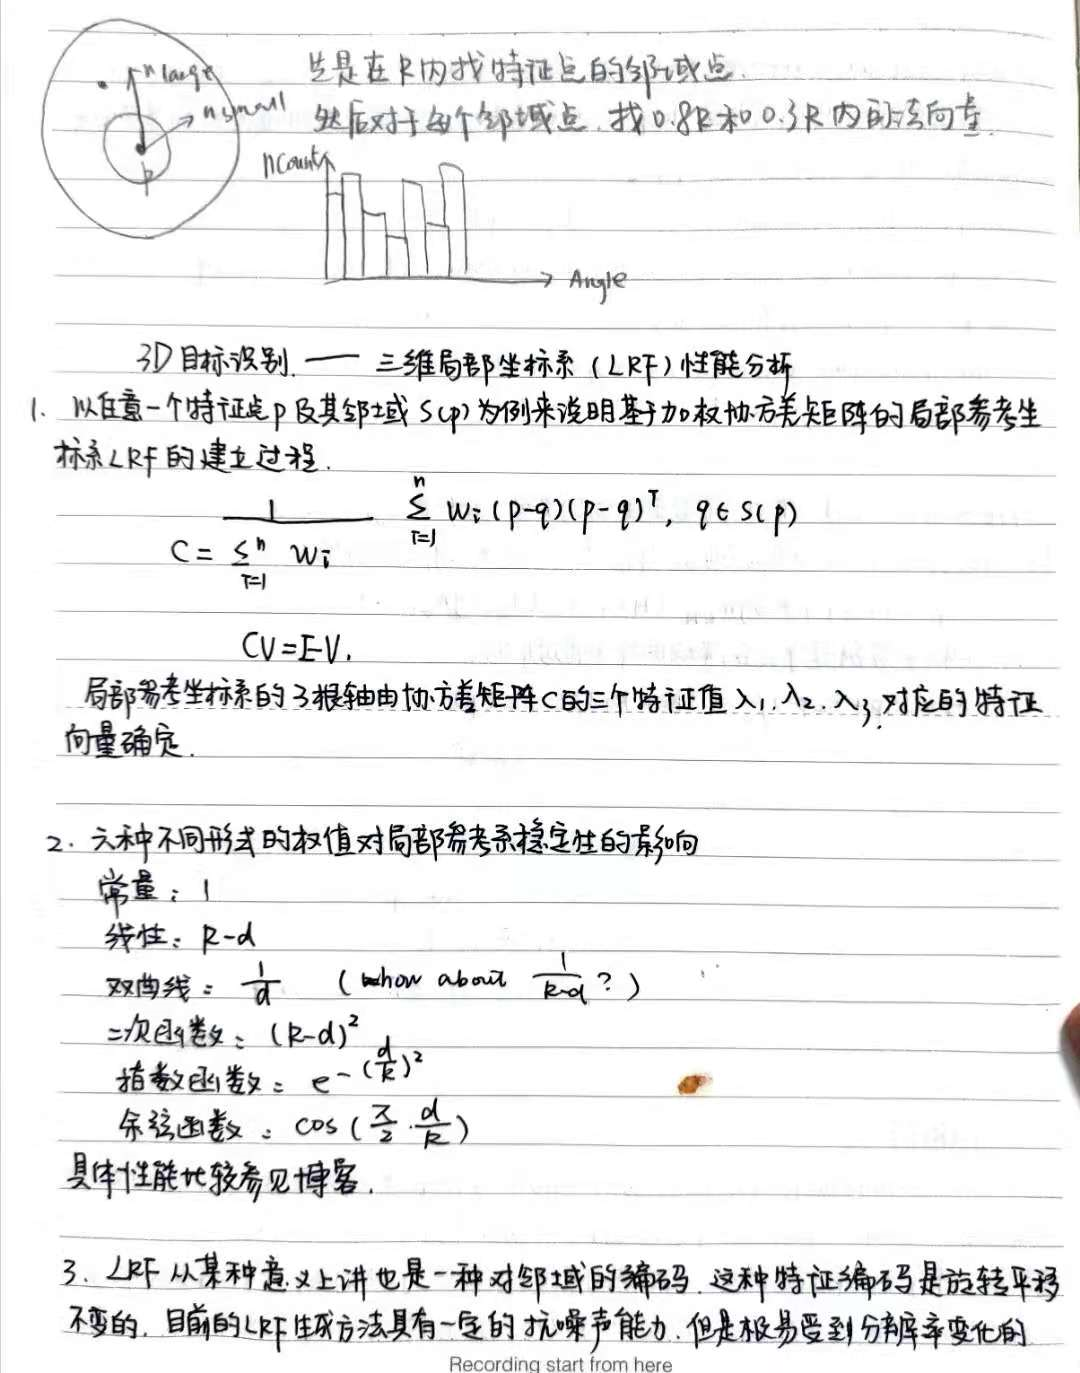 n large
n small
p
先是在R内找特征点的邻域点.
然后对于每个邻域点,找0.8R和0.3R内的法向量.
nCount
Angle
3D目标识别.—— 三维局部坐标系(LRF)性能分析
1. 以任意一个特征点p及其邻域S(p)为例来说明基于加权协方差矩阵的局部参考坐
标系LRF的建立过程.
C = 1 / Σ_{i=1}^{n} wi Σ_{i=1}^{n} wi (p-q)(p-q)^T, q∈S(p)
CV=EV.
局部参考坐标系的3根轴由协方差矩阵C的三个特征值λ1,λ2,λ3,对应的特征
向量确定.
2. 六种不同形式的权值对局部参考系稳定性的影响
常量: 1
线性: R-d
双曲线: 1/d (how about 1/(R-d) ?)
二次函数: (R-d)²
指数函数: e-(d/R)²
余弦函数: cos(π/2·d/R)
具体性能比较参见博客.
3. LRF从某种意义上讲也是一种对邻域的编码.这种特征编码是旋转平移
不变的.目前的LRF生成方法具有一定的抗噪声能力.但是极易受到分辨率变化的
Recording start from here